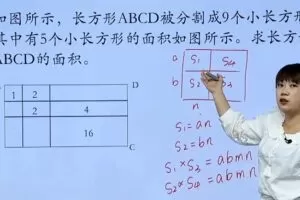 如图所示,长方形ABCD被分割成9个小长方形
其中有5个小长方形的面积如图所示。求长方
ABCD的面积。
D
1 2
2 4
16
C
a S₁ S₄
b S₂ S₃
n
S₁=an
S₂=bn
S₁×S₃=abmn
S₂×S₄=abmn